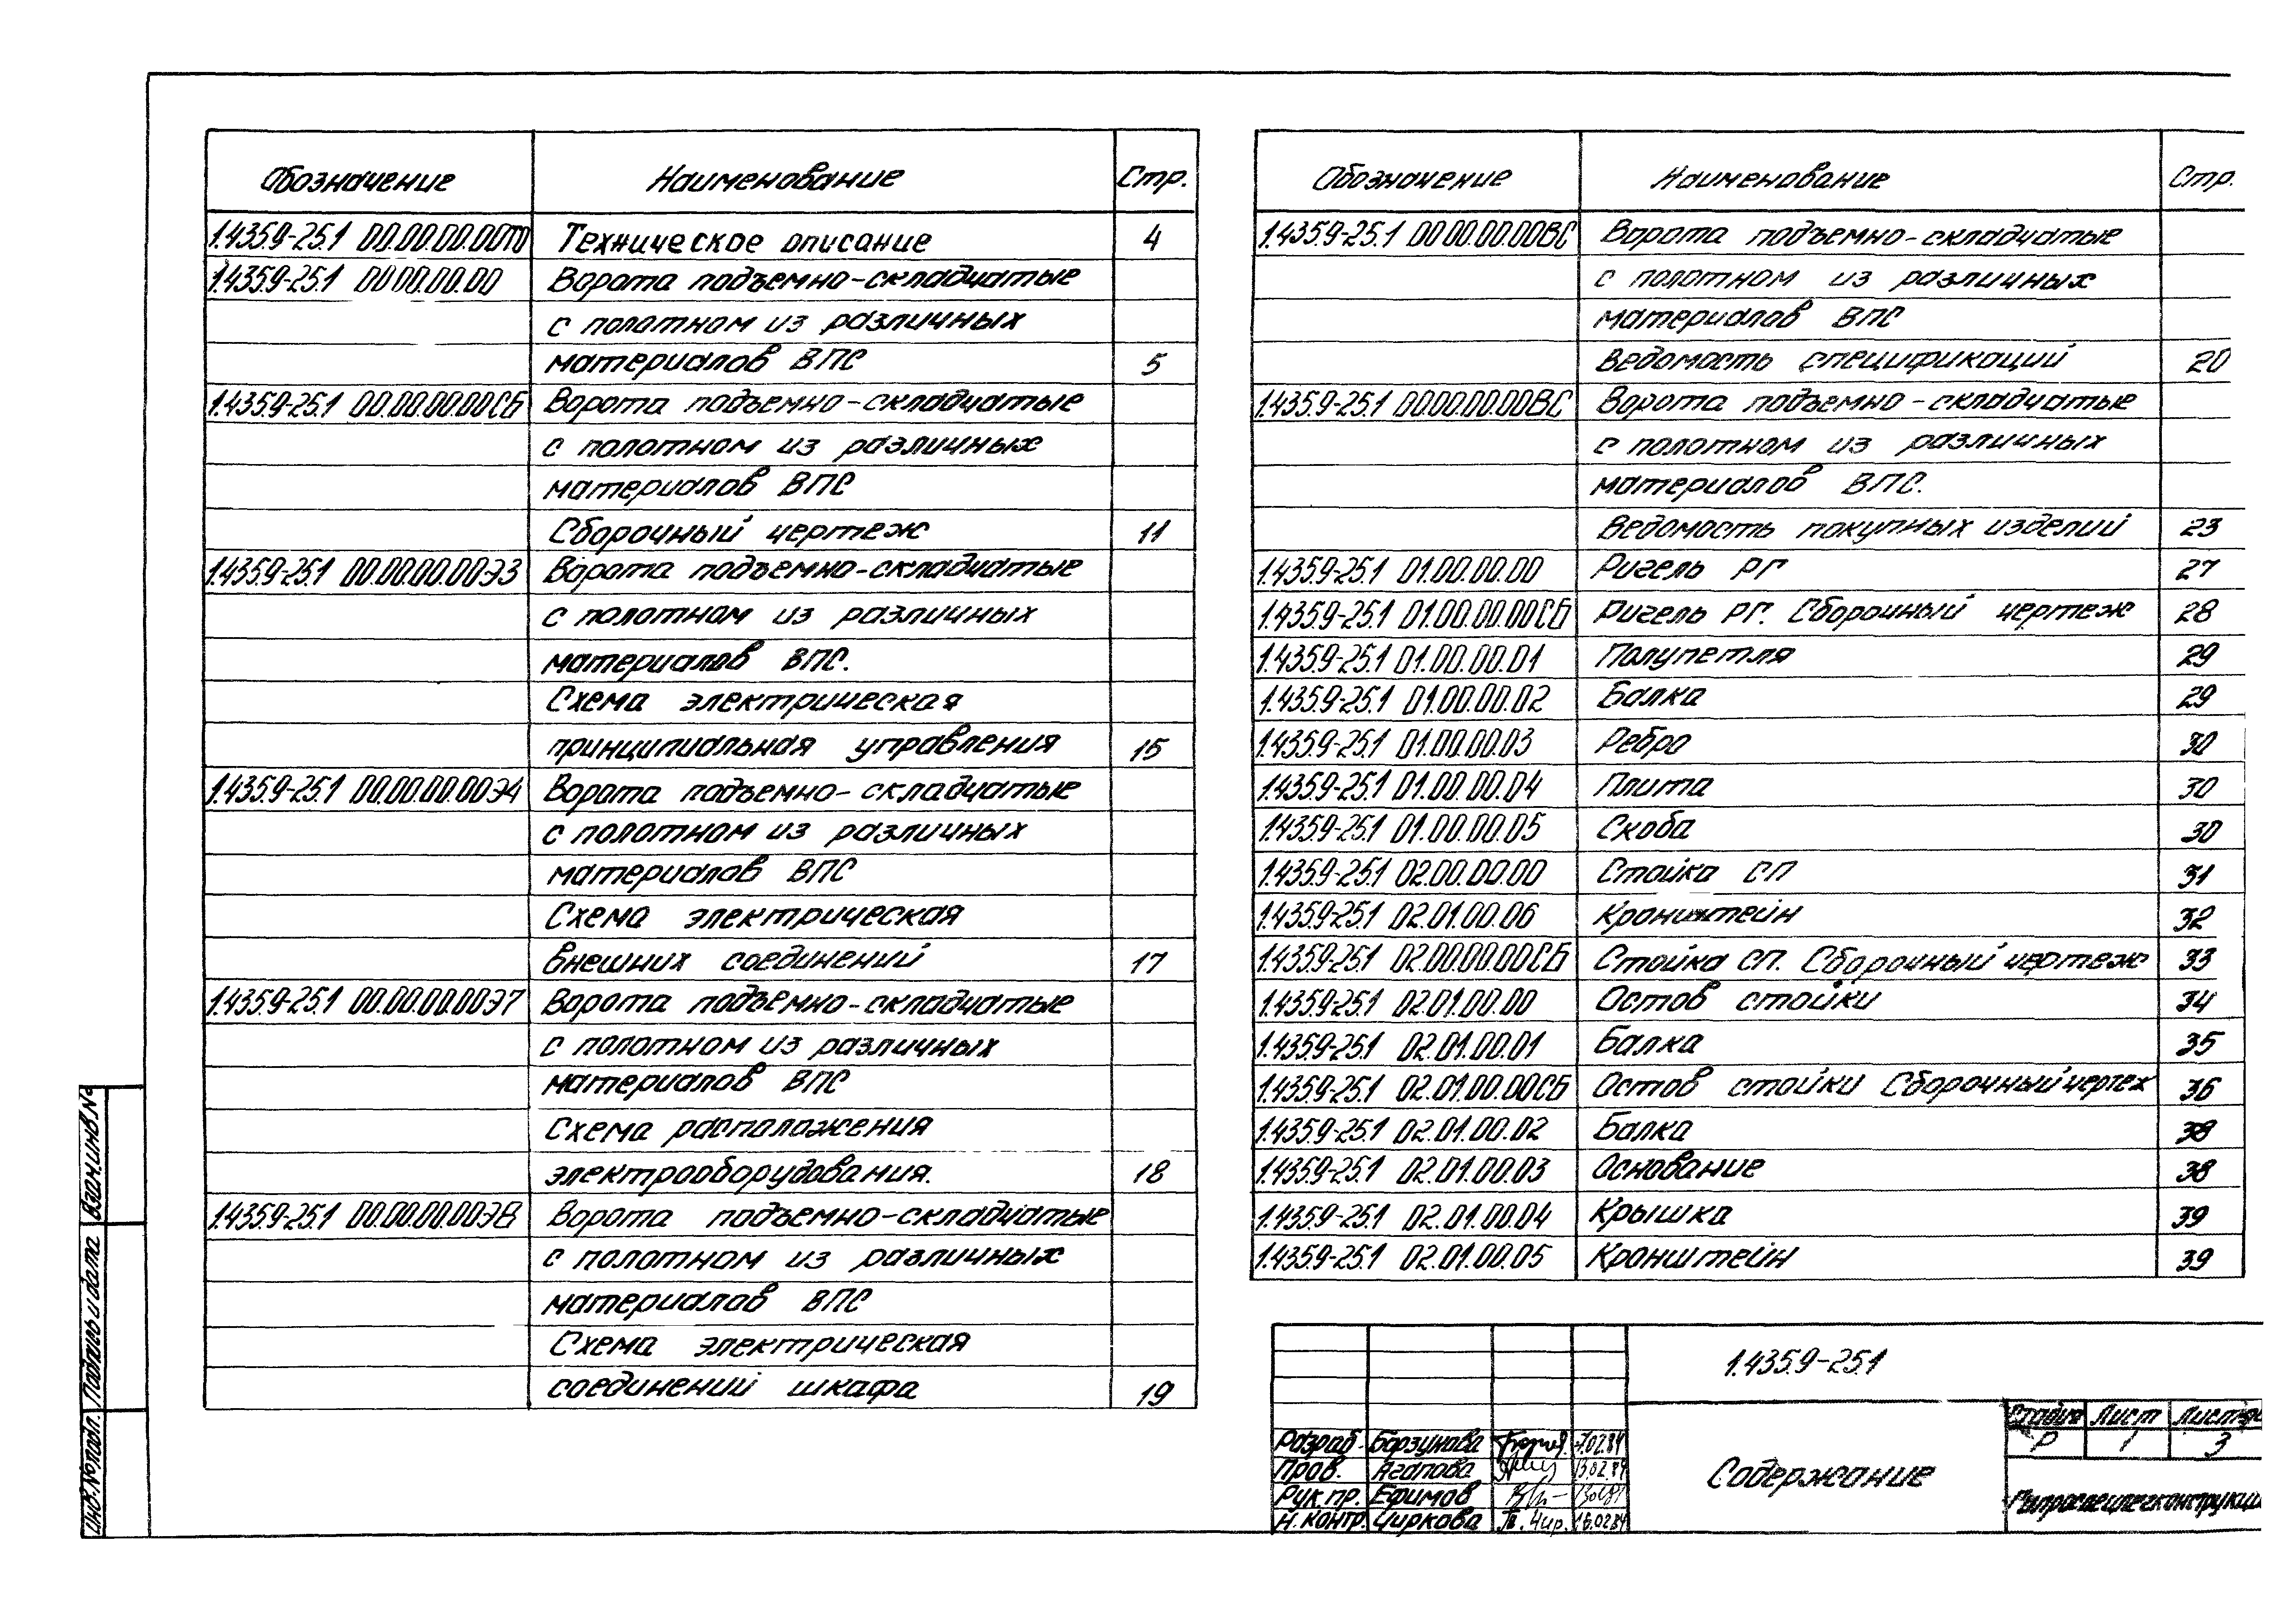 Обозначение Наименование Стр.
1.435.9-25.1 00.00.00.00ТО Техническое описание 4
1.435.9-25.1 00.00.00.00 Ворота подъемно-складчатые
с полотном из различных
материалов ВПС 5
1.435.9-25.1 00.00.00.00СБ Ворота подъемно-складчатые
с полотном из различных
материалов ВПС
Сборочный чертеж 11
1.435.9-25.1 00.00.00.00Э3 Ворота подъемно-складчатые
с полотном из различных
материалов ВПС.
Схема электрическая
принципиальная управления 15
1.435.9-25.1 00.00.00.00Э4 Ворота подъемно-складчатые
с полотном из различных
материалов ВПС
Схема электрическая
внешних соединений 17
1.435.9-25.1 00.00.00.00Э7 Ворота подъемно-складчатые
с полотном из различных
материалов ВПС
Схема расположения
электрооборудования. 18
1.435.9-25.1 Ворота подъемно-складчатые
с полотном из различных
материалов ВПС
Схема электрическая
соединений шкафа 19
Обозначение Наименование Стр.
1.435.9-25.1 00.00.00.00ВС Ворота подъемно-складчатые
с полотном из различных
материалов ВПС
Ведомость спецификаций 20
1.435.9-25.1 00.00.00.00ВС Ворота подъемно-складчатые
с полотном из различных
материалов ВПС.
Ведомость покупных изделий 23
1.435.9-25.1 01.00.00.00 Ригель РГ 27
1.435.9-25.1 01.00.00.00СБ Ригель РГ. Сборочный чертеж 28
1.435.9-25.1 01.00.00.01 Полупетля 29
1.435.9-25.1 01.00.00.02 Балка 29
1.435.9-25.1 01.00.00.03 Ребро 30
1.435.9-25.1 01.00.00.04 Плита 30
1.435.9-25.1 01.00.00.05 Скоба 30
1.435.9-25.1 02.00.00.00 Стойка СП 31
1.435.9-25.1 02.01.00.06 Кронштейн 32
1.435.9-25.1 02.00.00.00СБ Стойка СП. Сборочный чертеж 33
1.435.9-25.1 02.01.00.00 Остов стойки 34
1.435.9-25.1 02.01.00.01 Балка 35
1.435.9-25.1 02.01.00.00СБ Остов стойки Сборочный чертеж 36
1.435.9-25.1 02.01.00.02 Балка 38
1.435.9-25.1 02.01.00.03 Основание 38
1.435.9-25.1 02.01.00.04 Крышка 39
1.435.9-25.1 02.01.00.05 Кронштейн 39
Инв.№подл. Подпись и дата Взам.инв.№
1.435.9-25.1
Стадия Лист Листов
Р 1 3
Содержание
Гипроспецлегконструкци
Разраб. Борзунова 7.02.84
Пров. Агапова 13.02.84
Рук.пр. Ефимов
Н. контр. Чиркова 16.02.84